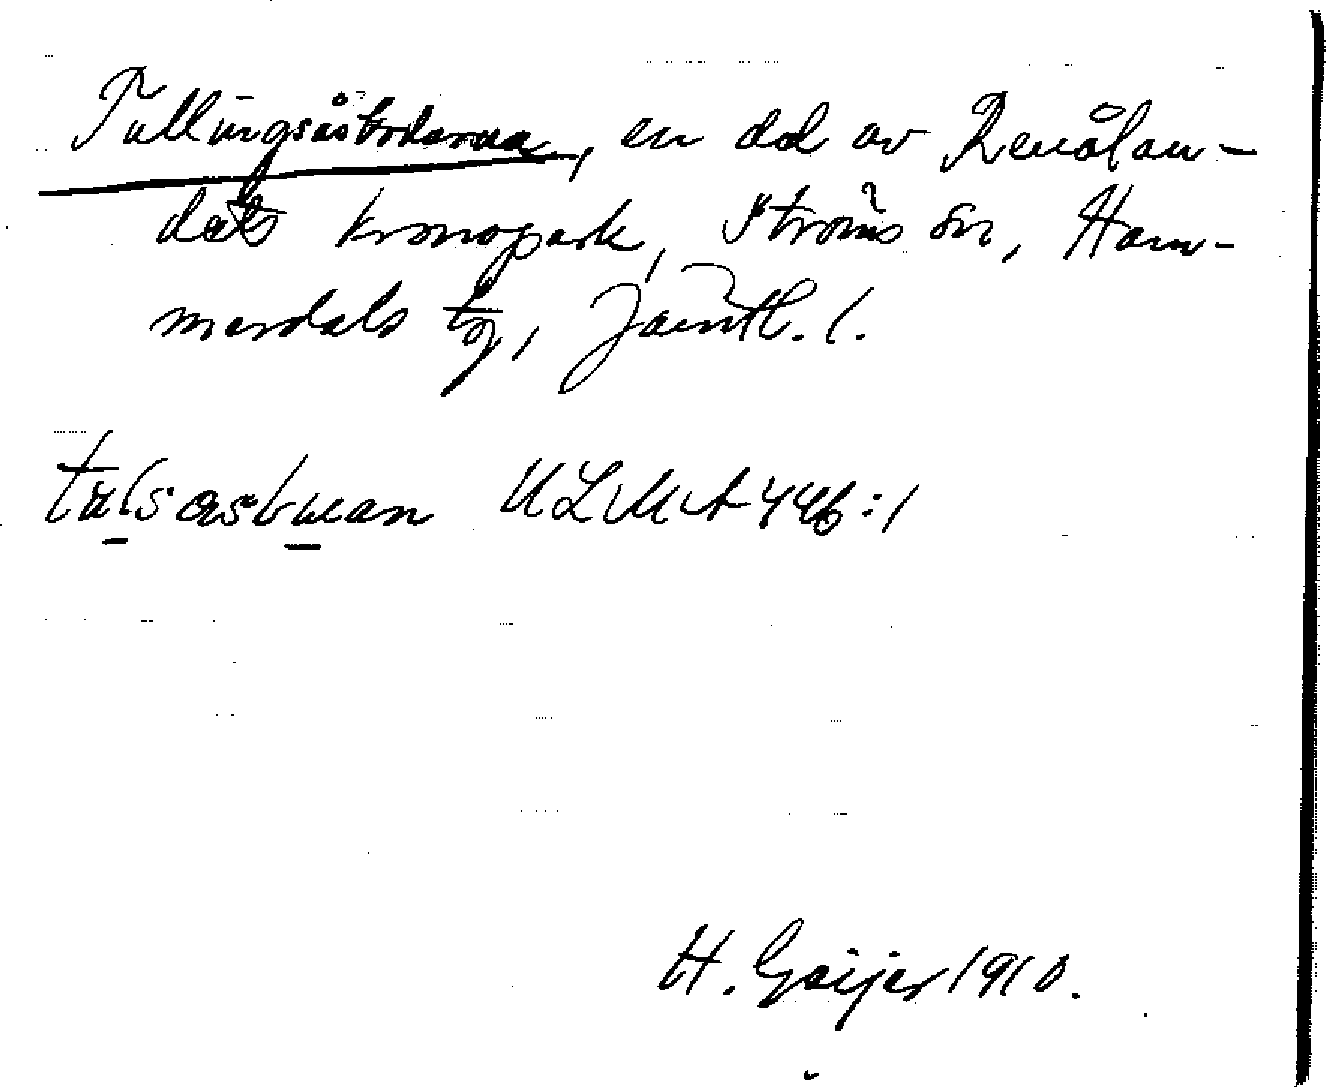 Tullingsåsbodarna, en del av Renålan-
dets kronopark, Ströms sn, Ham-
merdals tg, Jämtl. l.
ULMA 446:1
H. Geijer 1910.